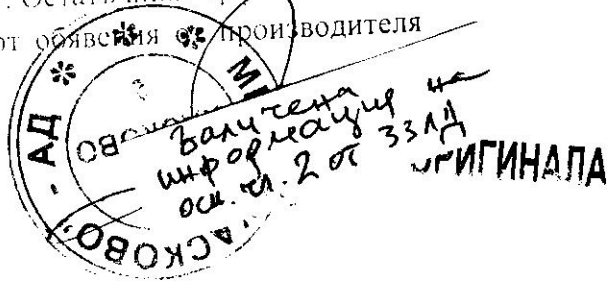 от обявения от производителя
Заличена
информация на
осн. чл. 2 от ЗЗЛД
ОРИГИНАЛА
АСКОВО" - АД * * М
ОВО